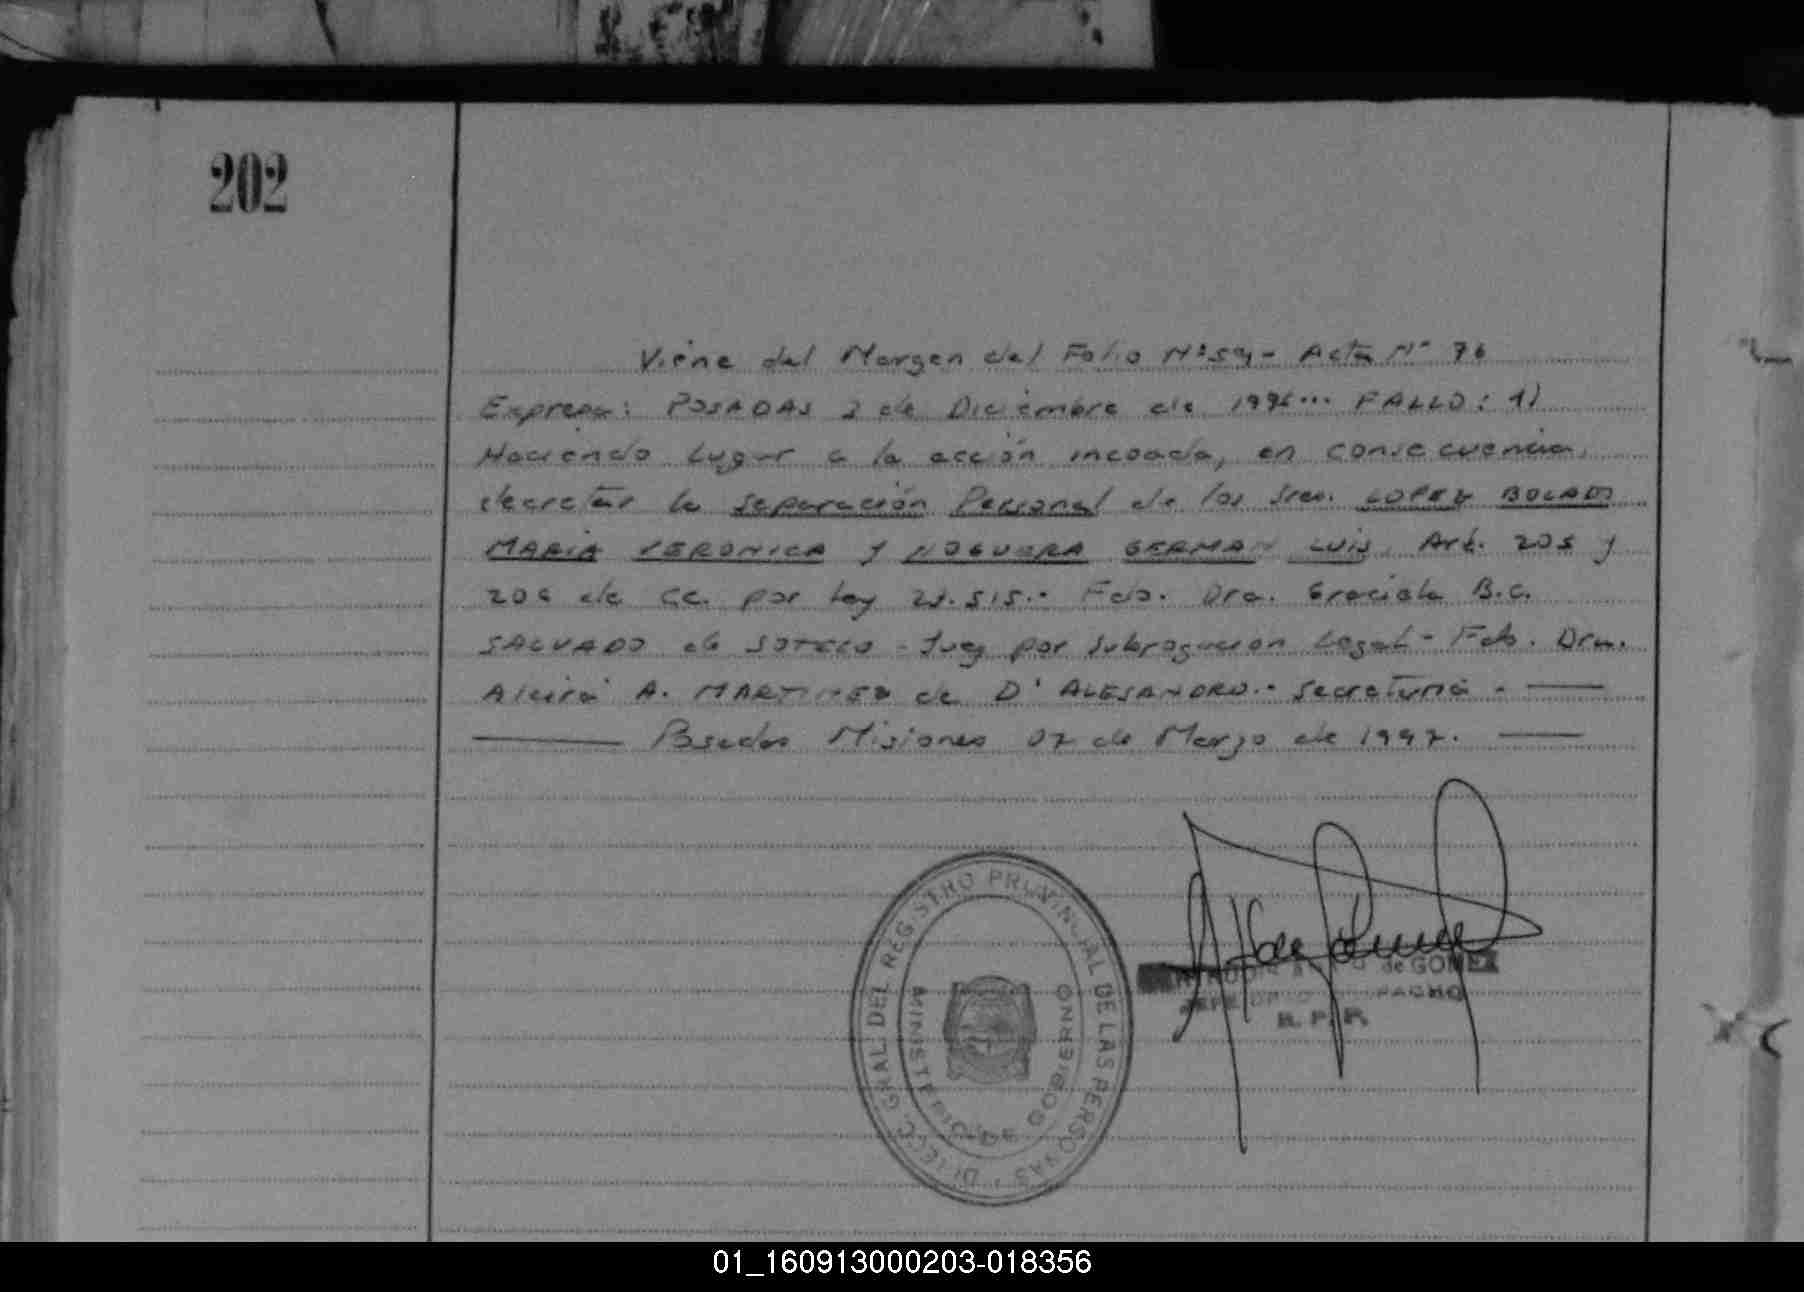 202
Viene del Margen del Folio Nº 59 - Acta Nº 76
Expresa: POSADAS 2 de Diciembre de 1996... FALLO: 1)
Haciendo Lugar a la acción incoada, en consecuencia,
decretar la Separación Personal de los Sres. LOPEZ BOLAÑOS
MARIA VERONICA y NOGUERA GERMAN LUIS, Art. 205 y
206 de CC. por Ley 23.515.- Fdo. Dra. Graciela B.C.
SALVADO de SOTELO - Juez por Subrogación Legal - Fdo. Dra.
Alcira A. MARTINEZ de D'ALESANDRO.- Secretaria.-
Posadas Misiones 07 de Marzo de 1997.
DIRECC. GRAL. DEL REGISTRO PROVINCIAL DE LAS PERSONAS
MINISTERIO DE GOBIERNO
de GOMEZ
JEFE DPTO DESPACHO
R. P. P.
01_160913000203-018356